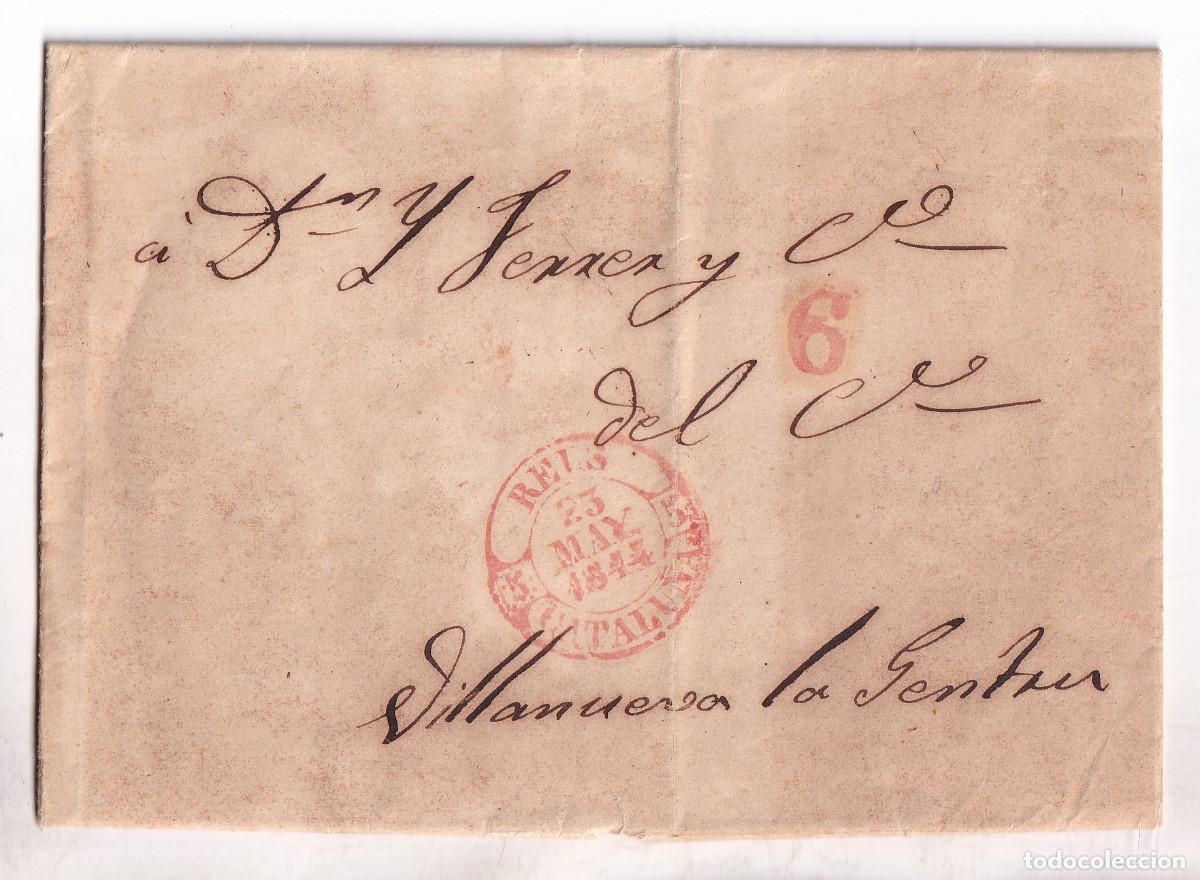 á Dn Y Ferrer y Ca
6
del Co
REUS
23
MAY.
1844
CATALUÑA
Villanueva la Geltru
todocoleccion